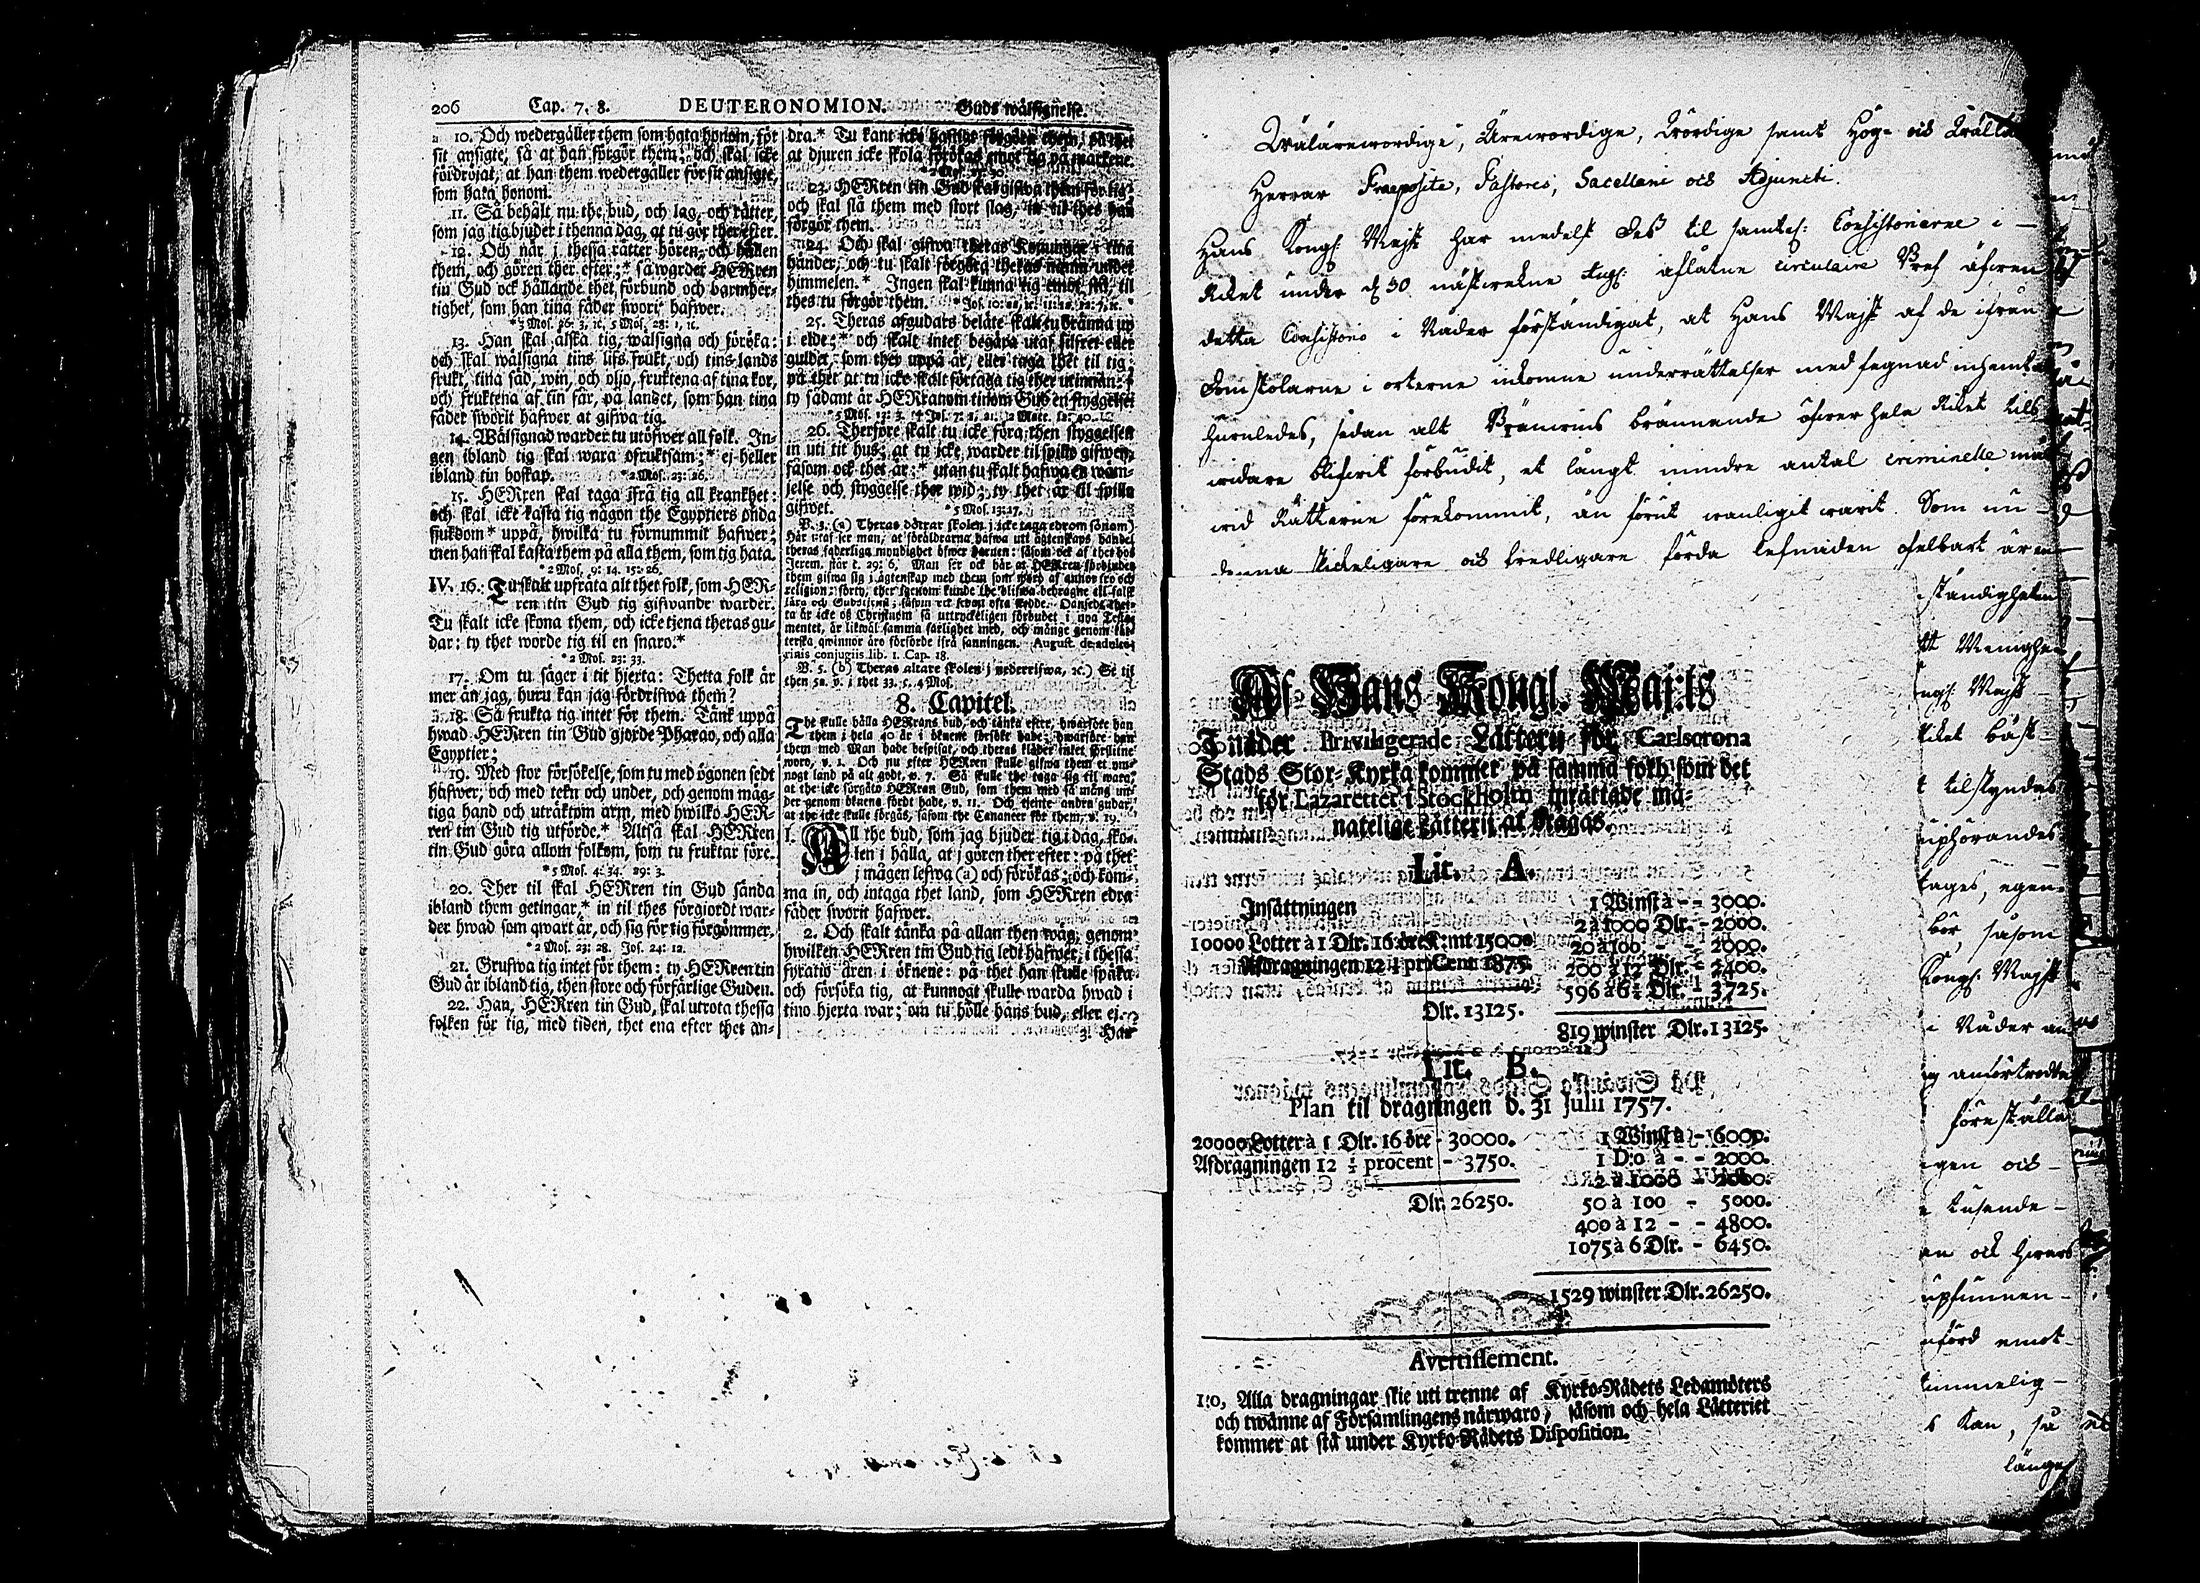 206 Cap. 7. 8. DEUTERONOMION. Guds wälsignelse.
10. Och wedergäller them som hata honom, för
sit ansigte, så at han förgör them; och skal icke
fördröjat, at han them wedergäller för sit ansigte,
som hata honom.
11. Så behålt nu the bud, och lag, och rätter,
som jag tig bjuder i thenna dag, at tu gör ther efter.
12. Och när j thessa rätter hören, och hållen
them, och gören ther efter;* så warder HERren
tin Gud ock hållande thet förbund och barmher-
tighet, som han tina fäder sworit hafwer.
*3 Mos. 26: 3, ic. 5 Mos. 28: 1, ic.
13. Han skal älska tig, wälsigna och föröka:
och skal wälsigna tins lifs frukt, och tins lands
frukt, tina säd, win, och oljo, fruktena af tina kor,
och fruktena af tin får, på landet, som han tina
fäder sworit hafwer at gifwa tig.
14. Wälsignad warder tu utöfwer all folk. In-
gen ibland tig skal wara ofruktsam;* ej heller
ibland tin boskap. *2 Mos. 23: 26.
15. HERren skal taga ifrå tig all krankhet:
och skal icke kasta tig någon the Egyptiers onda
sjukdom* uppå, hwilka tu förnummit hafwer;
men han skal kasta them på alla them, som tig hata.
*2 Mos. 9: 14. 15: 26.
IV. 16. Tu skalt upfräta alt thet folk, som HER-
ren tin Gud tig gifwande warder.
Tu skalt icke skona them, och icke tjena theras gu-
dar: ty thet worde tig til en snaro.*
*2 Mos. 23: 33.
17. Om tu säger i tit hjerta: Thetta folk är
mer än jag, huru kan jag fördrifwa them?
18. Så frukta tig intet för them. Tänk uppå
hwad HERren tin Gud gjorde Pharao, och alla
Egyptier;
19. Med stor försökelse, som tu med ögonen sedt
hafwer, och med tekn och under, och genom mäg-
tiga hand och uträktom arm, med hwilko HER-
ren tin Gud tig utförde.* Altså skal HERren
tin Gud göra allom folkom, som tu fruktar före.
*5 Mos. 4: 34. 29: 3.
20. Ther til skal HERren tin Gud sända
ibland them getingar,* in til thes förgjordt war-
der hwad som qwart är, och sig för tig förgömmer.
*2 Mos. 23: 28. Jos. 24: 12.
21. Grufwa tig intet för them: ty HERren tin
Gud är ibland tig, then store och förfärlige Guden.
22. Han, HERren tin Gud, skal utrota thessa
folken för tig, med tiden, thet ena efter thet an-
dra.* Tu kant icke hastigt förgöra them, på thet
at djuren icke skola förökas emot tig på markene.
23. HERren tin Gud skal gifwa them för tig:
och skal slå them med stort slag, in til thes han
förgör them.
24. Och skal gifwa theras Konungar i tina
händer, och tu skalt förgöra theras namn under
himmelen.* Ingen skal kunna tig emot stå, til
thes tu förgör them.
25. Theras afgudars beläte skalt tu bränna up
i elde;* och skalt intet begära utaf silfret eller
guldet, som ther uppå är, eller taga thet til tig;
på thet at tu icke skalt förtaga tig ther utinnan:
ty sådant är HERranom tinom Gud en styggelse.
26. Therföre skalt tu icke föra then styggelsen
in uti tit hus; at tu icke warder til spillo gifwen,
såsom ock thet är:* utan tu skalt hafwa en wäm-
jelse och styggelse ther wid; ty thet är til spillo
gifwet. *5 Mos. 13: 17.
V. 3. (a) Theras döttrar skolen j icke taga edrom sönom)
Här utaf ser man, at föräldrarna hafwa uti ägtenskaps handel
theras faderliga myndighet öfwer barnen: såsom ock af thet hos
Jerem. står c. 29: 6. Man ser ock här at HERren förbjuder
them gifwa sig i ägtenskap med them som woro af annor tro och
religion: forty, ther igenom kunde the blifwa bedragne til falsk
lära och Gudstjenst; såsom ock sedan ofta skedde.
V. 5. (b) Theras altare skolen j nederrifwa, ic.) Se til
then 52. v. i thet 33. c. 4 Mos.
8. Capitel.
The skulle hålla HERrans bud, och tänka efter, hwarföre han
them i hela 40 år i öknene försökt hade; hwarföre han
them med Man hade bespisat, och theras kläder intet förslitne
woro, v. 1. Och nu efter HERren skulle gifwa them et ym-
nogt land på alt godt, v. 7. Så skulle the taga sig til wara,
at the icke förgåto HERran Gud, som them med så mång un-
der genom öknena fördt hade, v. 11. Och tjente andra gudar,
at the icke skulle förgås, såsom the Cananeer för them, v. 19.
I. All the bud, som jag bjuder tig i dag, sko-
len i hålla, at j gören ther efter: på thet
j mågen lefwa (a) och förökas; och kom-
ma in, och intaga thet land, som HERren edra
fäder sworit hafwer.
2. Och skalt tänka på allan then wäg, genom
hwilken HERren tin Gud tig ledt hafwer, i thessa
fyratio åren i öknene: på thet han skulle späka
och försöka tig, at kunnogt skulle warda hwad i
tino hjerta war; om tu hölle hans bud, eller ej.
3. Han
Wälärewordige, Ärewordige, Wördige samt Hög- och
Herrar Praeposite, Pastores, Sacellani och Adjuncti.
Hans Kongl. Majst har medelst Des til samtel. Consistorierne i
Riket under d. 30 nästwekne Aug. aflåtne circulaire Bref äfwen
detta Consistorio i Nåder förständigat, at Hans Majst af de ifrån
Domstolarne i orterne inkomne underrättelser med fegnad
huruledes, sedan alt Bränwins brännande öfwer hela Riket tils
widare blifwit förbudit, et långt mindre antal criminelle mål
wid Rätterne förekommit, än förut wanligit warit. Som nu
denna skickeligare och fredligare förda lefnaden ofelbart är
ständigheten
Menighe
Majst
Riket bäst
t tilskyndas
uphörandes
tages, egen
bör, såsom
Kongl. Majst
i Nåder an
anförtrodde
föreställa
gen och
tusende
an ock hwars
upfunnen
förd emot
timmelig
s kan, så
länge
Af Hans Kongl. Maj:ts
I nåder Priviligerade Lätterij för Carlscrona
Stads Stor-Kyrka kommer på samma foth som det
för Lazarettet i Stockholm inrättade må-
natelige Lätterij at dragas.
Lit. A.
Insättningen
10000 Lotter à 1 Dlr. 16 öre K:mt 15000
Afdragningen 12 ½ pr Cent 1875.
Dlr. 13125.
1 Winst à - - 3000.
2 à 1000 Dlr. - 2000.
20 à 100 - - 2000.
200 à 12 Dlr. - 2400.
596 à 6¼ Dlr. 3725.
819 winster Dlr. 13125.
Lit. B.
Plan til dragningen d. 31 Julii 1757.
20000 Lotter à 1 Dlr. 16 öre - 30000.
Afdragningen 12 ½ procent - 3750.
Dlr. 26250.
1 Winst à - 6000.
1 D:o à - - 2000.
2 à 1000 - 2000.
50 à 100 - 5000.
400 à 12 - - 4800.
1075 à 6 Dlr. - 6450.
1529 winster Dlr. 26250.
Avertissement.
1:o, Alla dragningar skie uti trenne af Kyrko-Rådets Ledamöters
och twänne af Församlingens närwaro, såsom och hela Lätteriet
kommer at stå under Kyrko-Rådets Disposition.